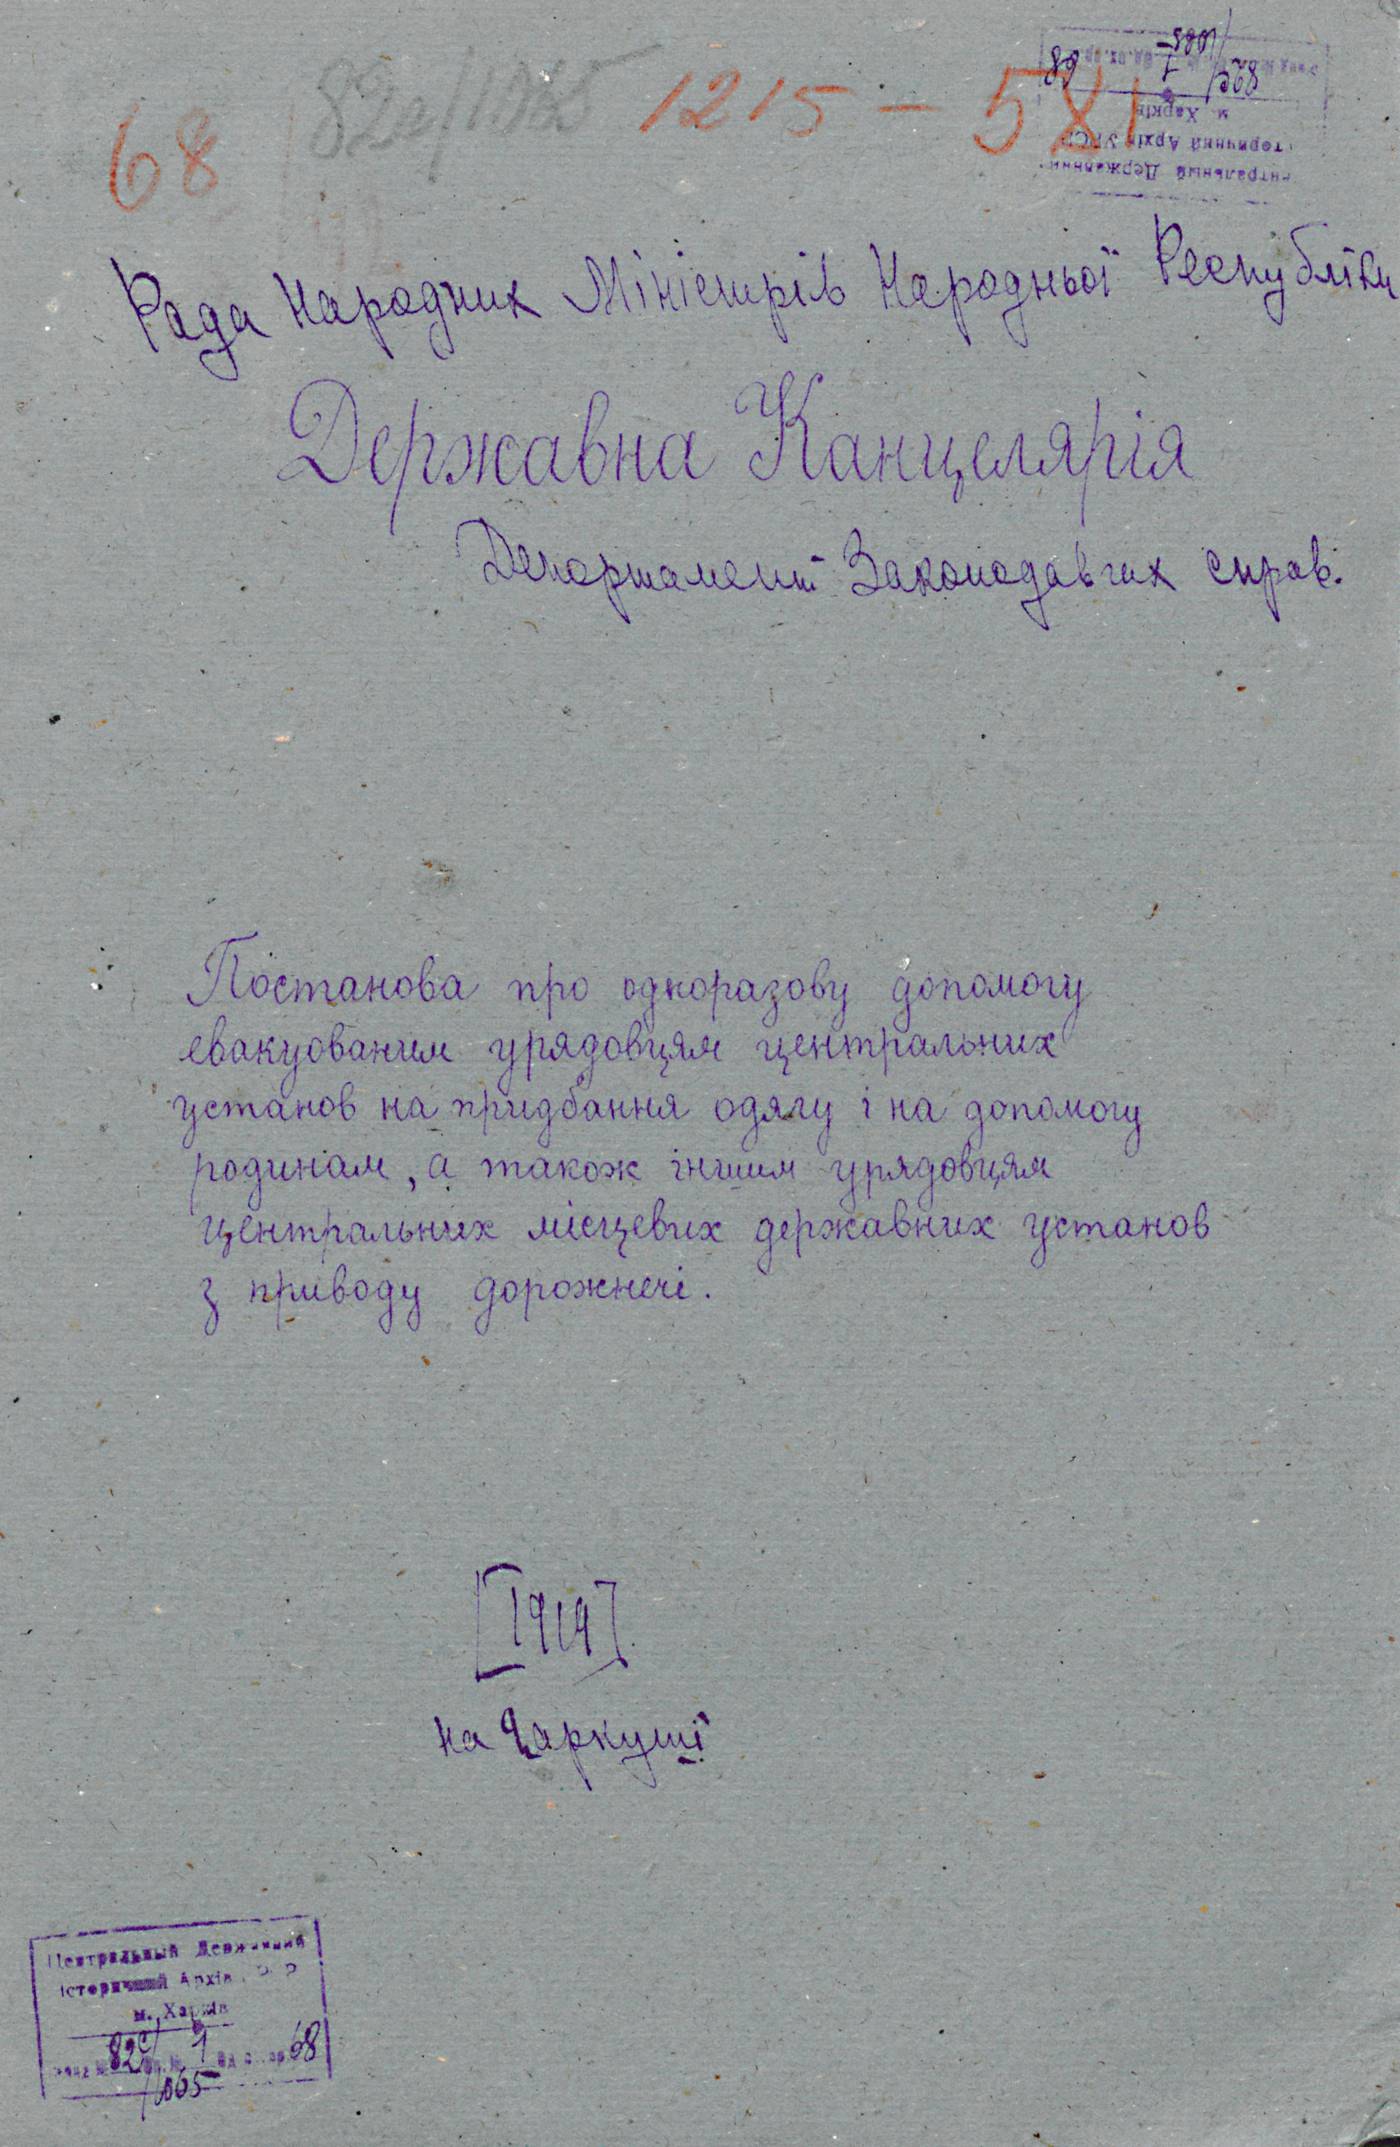 68
82с/1065
1215 — 581
Рада Народних Міністрів Народньої Республіки
Державна Канцелярія
Департамент Законодавчих справ.
Постанова про одноразову допомогу
евакуованим урядовцям центральних
установ на придбання одягу і на допомогу
родинам, а також іншим урядовцям
центральних місцевих державних установ
з приводу дорожнечі.
[1919]
на аркуші
Центральный Державний
Історичний Архів
м. Харків
82с/1065 1 68